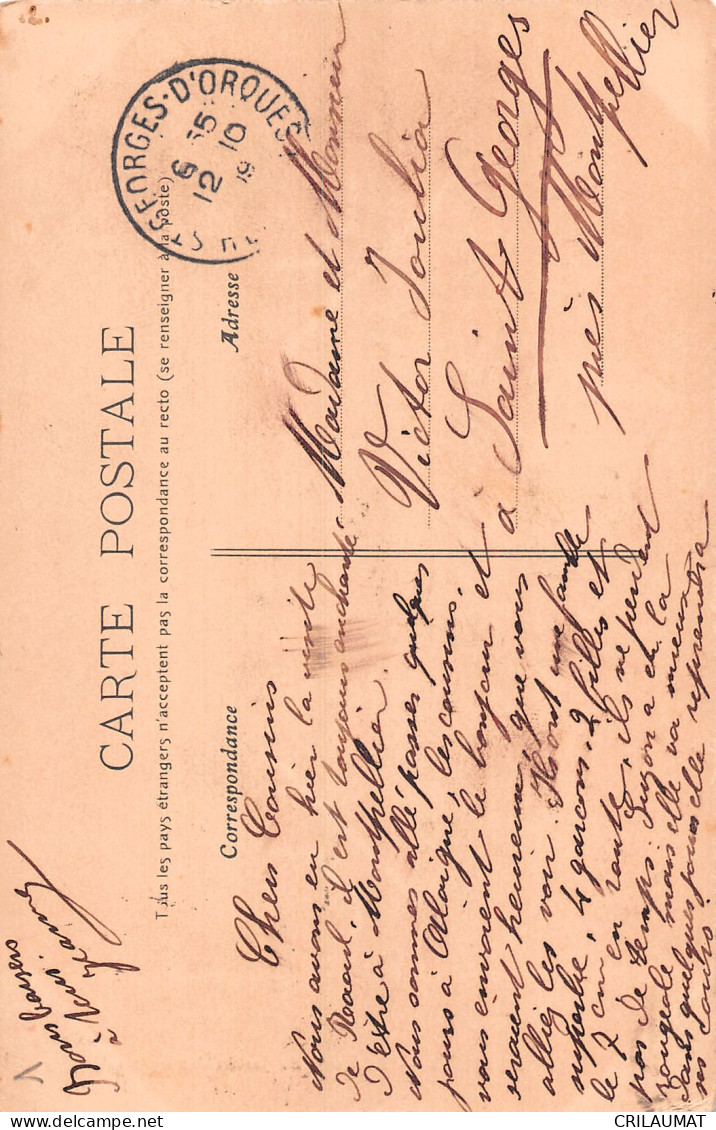 CARTE POSTALE
Tous les pays étrangers n'acceptent pas la correspondance au recto (se renseigner à la poste)
Correspondance
Adresse
ST GEORGES-D'ORQUES
6 55
12 10
Chers Cousins
Nous avons eu hier la visite
de Raoul, il est toujours enchanté
D'être à Montpellier.
Nous sommes allé passer quelques
jours à Alaigne, les cousins
vous envoient le bonjour et
seraient heureux que vous
alliez les voir. Ils ont une famille
superbe, 4 garçons, 2 filles et
le 7 em en route, ils ne perdent
pas de temps. Suzon a eu la
rougeole mais elle va mieux
dans quelques jours elle reprendra
Bons baisers
à tous
Madame et Monsieur
Victor
à Saint Georges
près Montpellier
CRILAUMAT